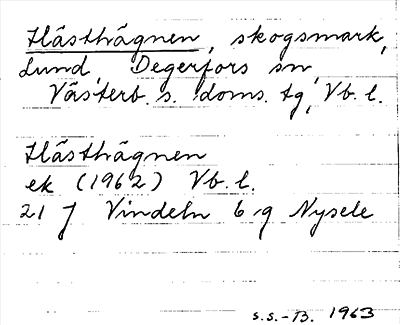 Hästhägnen, skogsmark,
Lund, Degerfors sn,
Västerb. s. doms. tg, Vb. l.
Hästhägnen
ek (1962) Vb. l.
21 J Vindeln 6 g Nysele
s.s.-B. 1963